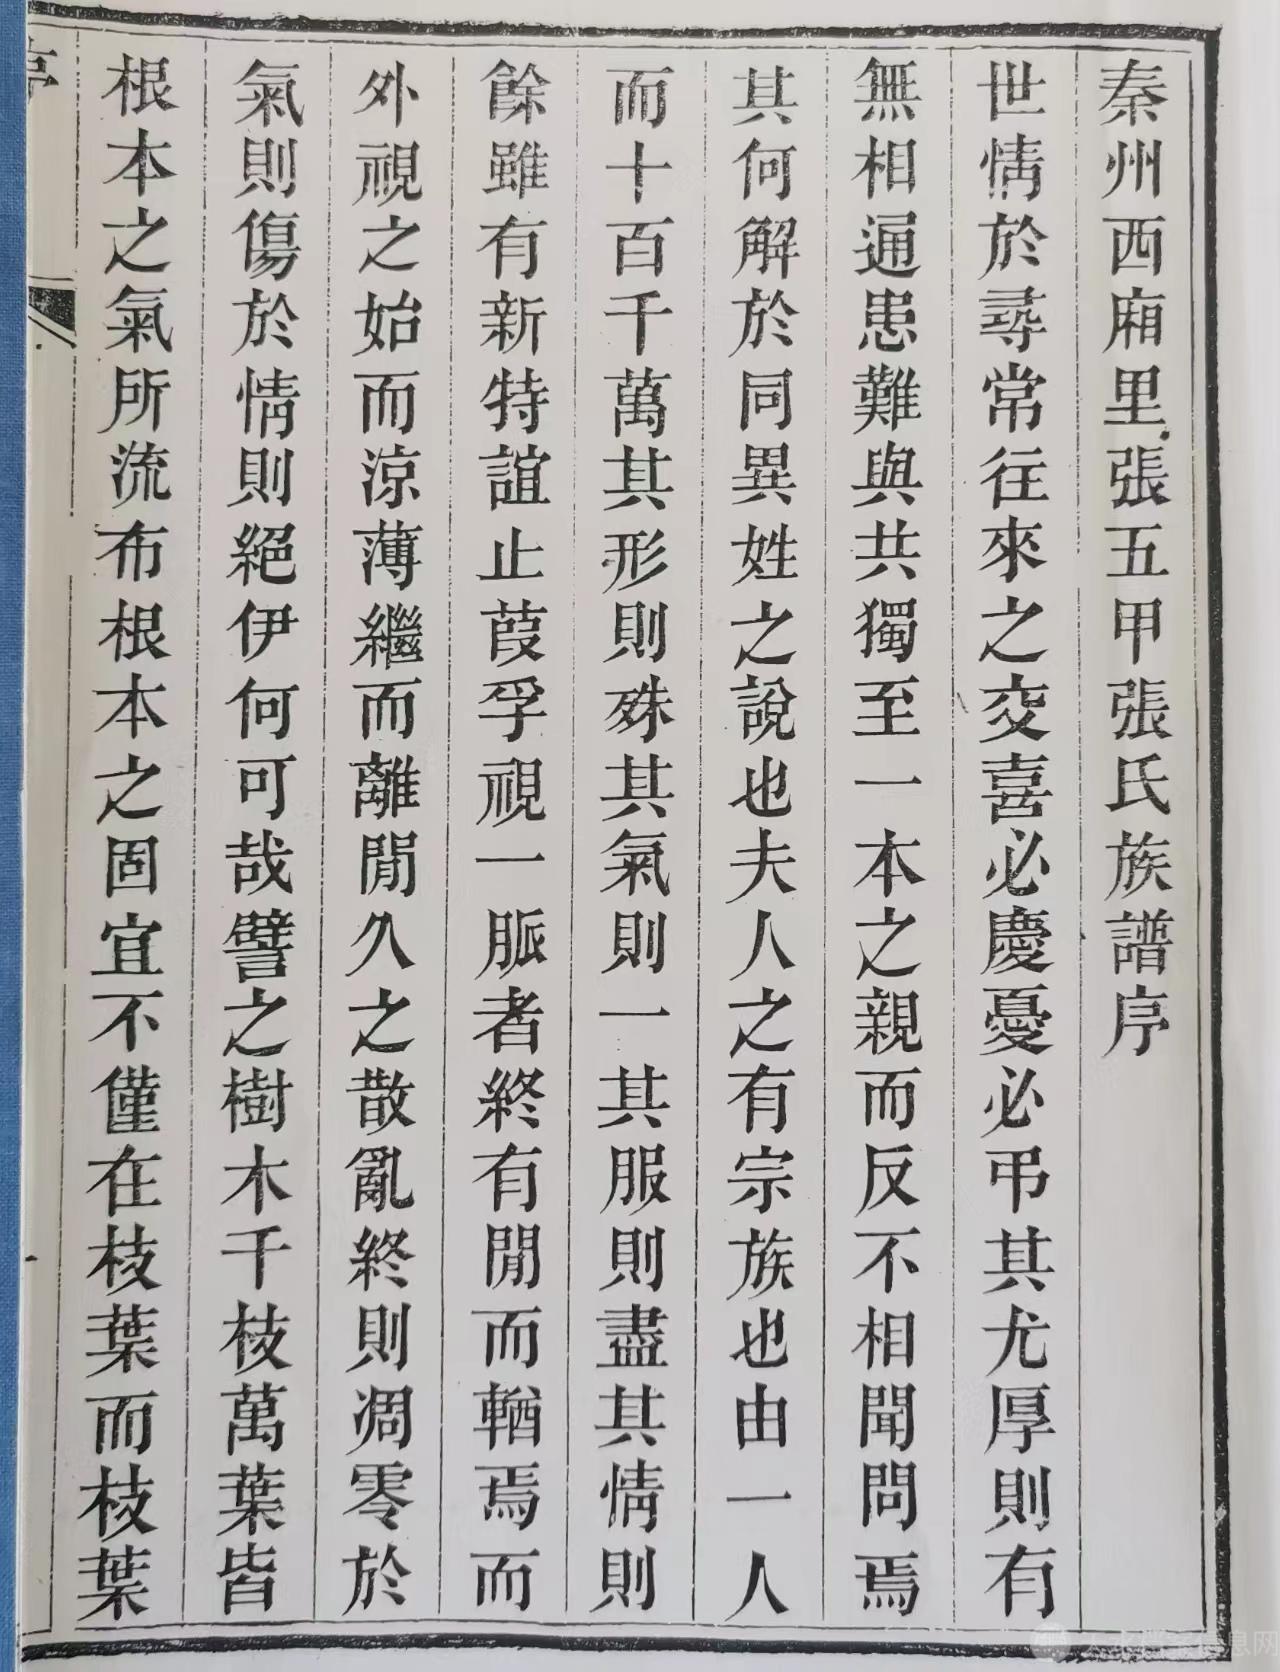 秦州西廂里張五甲張氏族譜序
世情於尋常往來之交喜必慶憂必弔其尤厚則有
無相通患難與共獨至一本之親而反不相聞問焉
其何解於同異姓之說也夫人之有宗族也由一人
而十百千萬其形則殊其氣則一其服則盡其情則
餘雖有新特誼止葭孚視一脈者終有閒而輶焉而
外視之始而涼薄繼而離閒久之散亂終則凋零於
氣則傷於情則絕伊何可哉譬之樹木千枝萬葉皆
根本之氣所流布根本之固宜不僅在枝葉而枝葉